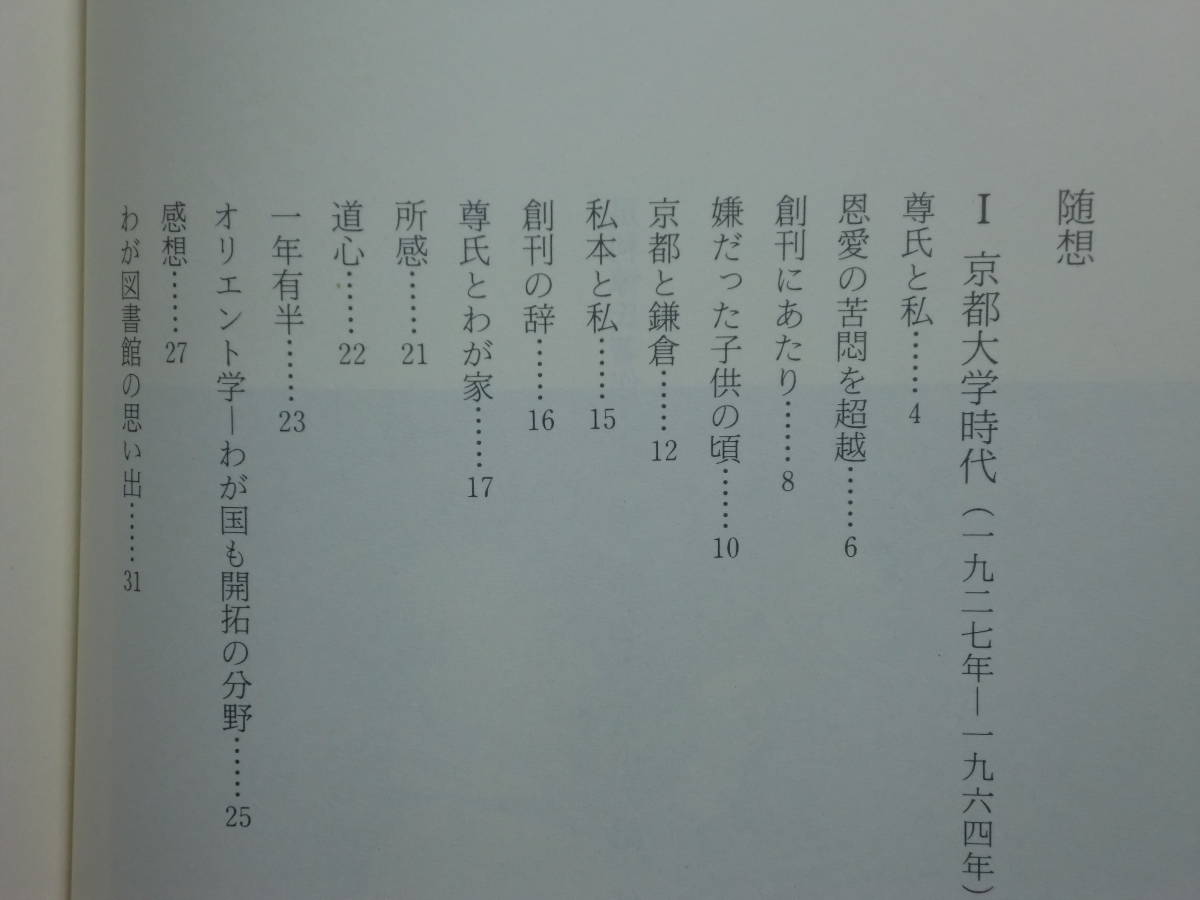 随想
Ⅰ 京都大学時代（一九二七年―一九六四年）
尊氏と私……4
恩愛の苦悶を超越……6
創刊にあたり……8
嫌だった子供の頃……10
京都と鎌倉……12
私本と私……15
創刊の辞……16
尊氏とわが家……17
所感……21
道心……22
一年有半……23
オリエント学―わが国も開拓の分野……25
感想……27
わが図書館の思い出……31